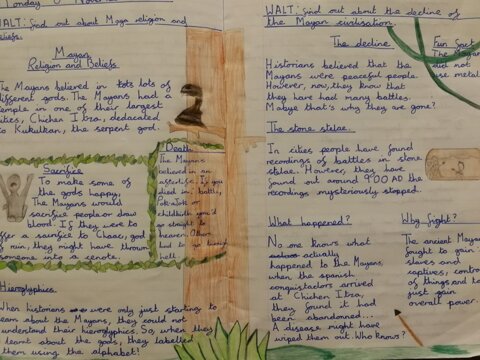 Monday
WALT: find out about Maya religion and
beliefs.
Mayan
Religion and Beliefs.
The Mayans believed in lots of
different gods. The Mayans had a
temple in one of their largest
cities, Chichen Itza, dedacated
to Kukulkan, the serpent god.
Sacrifice
To make some of
the gods happy,
The Mayans would
sacrifice people or draw
blood. If they were to
offer a sacrifice to Chaac, god
of rain, they might have thrown
someone into a senote.
Death
The Mayans
believed in an
afterlife. If you
died in battle,
or
childbirth you'd
go straight to
heaven. Others
had to go through
hell.
Hieroglyphics.
When histories were only just starting to
learn about the Mayans, they could not
understand their hieroglyphics. So, when they
learnt about the gods, they labelled
them using the alphabet!
WALT: find out about the decline of
the Mayan civilisation.
The decline.
Historians believed that the
Mayans were peaceful people.
However, now, they know that
they have had many battles.
Mabye that's why they are gone?
Fun Fact
The Mayans
did not
use metal
The stone stelae.
In cities people have found
recordings of battles in stone
stelae. However, they have
found out around 900 AD the
recordings mysteriously stopped.
What happened?
No one knows what
actually
happened to the Mayans,
when the spanish
conquistadors arrived
at Chichen Itza,
they found it had
been abandoned...
A disease might have
wiped them out. Who knows?
Why fight?
The ancient Mayans
fought to gain
slaves and
captives, control
of things and to
just gain
overall power.